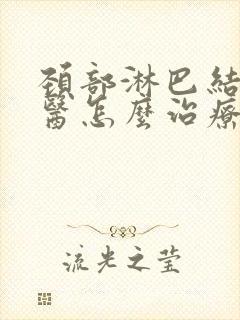 頸部淋巴結
醫怎麼治療
流光之莹